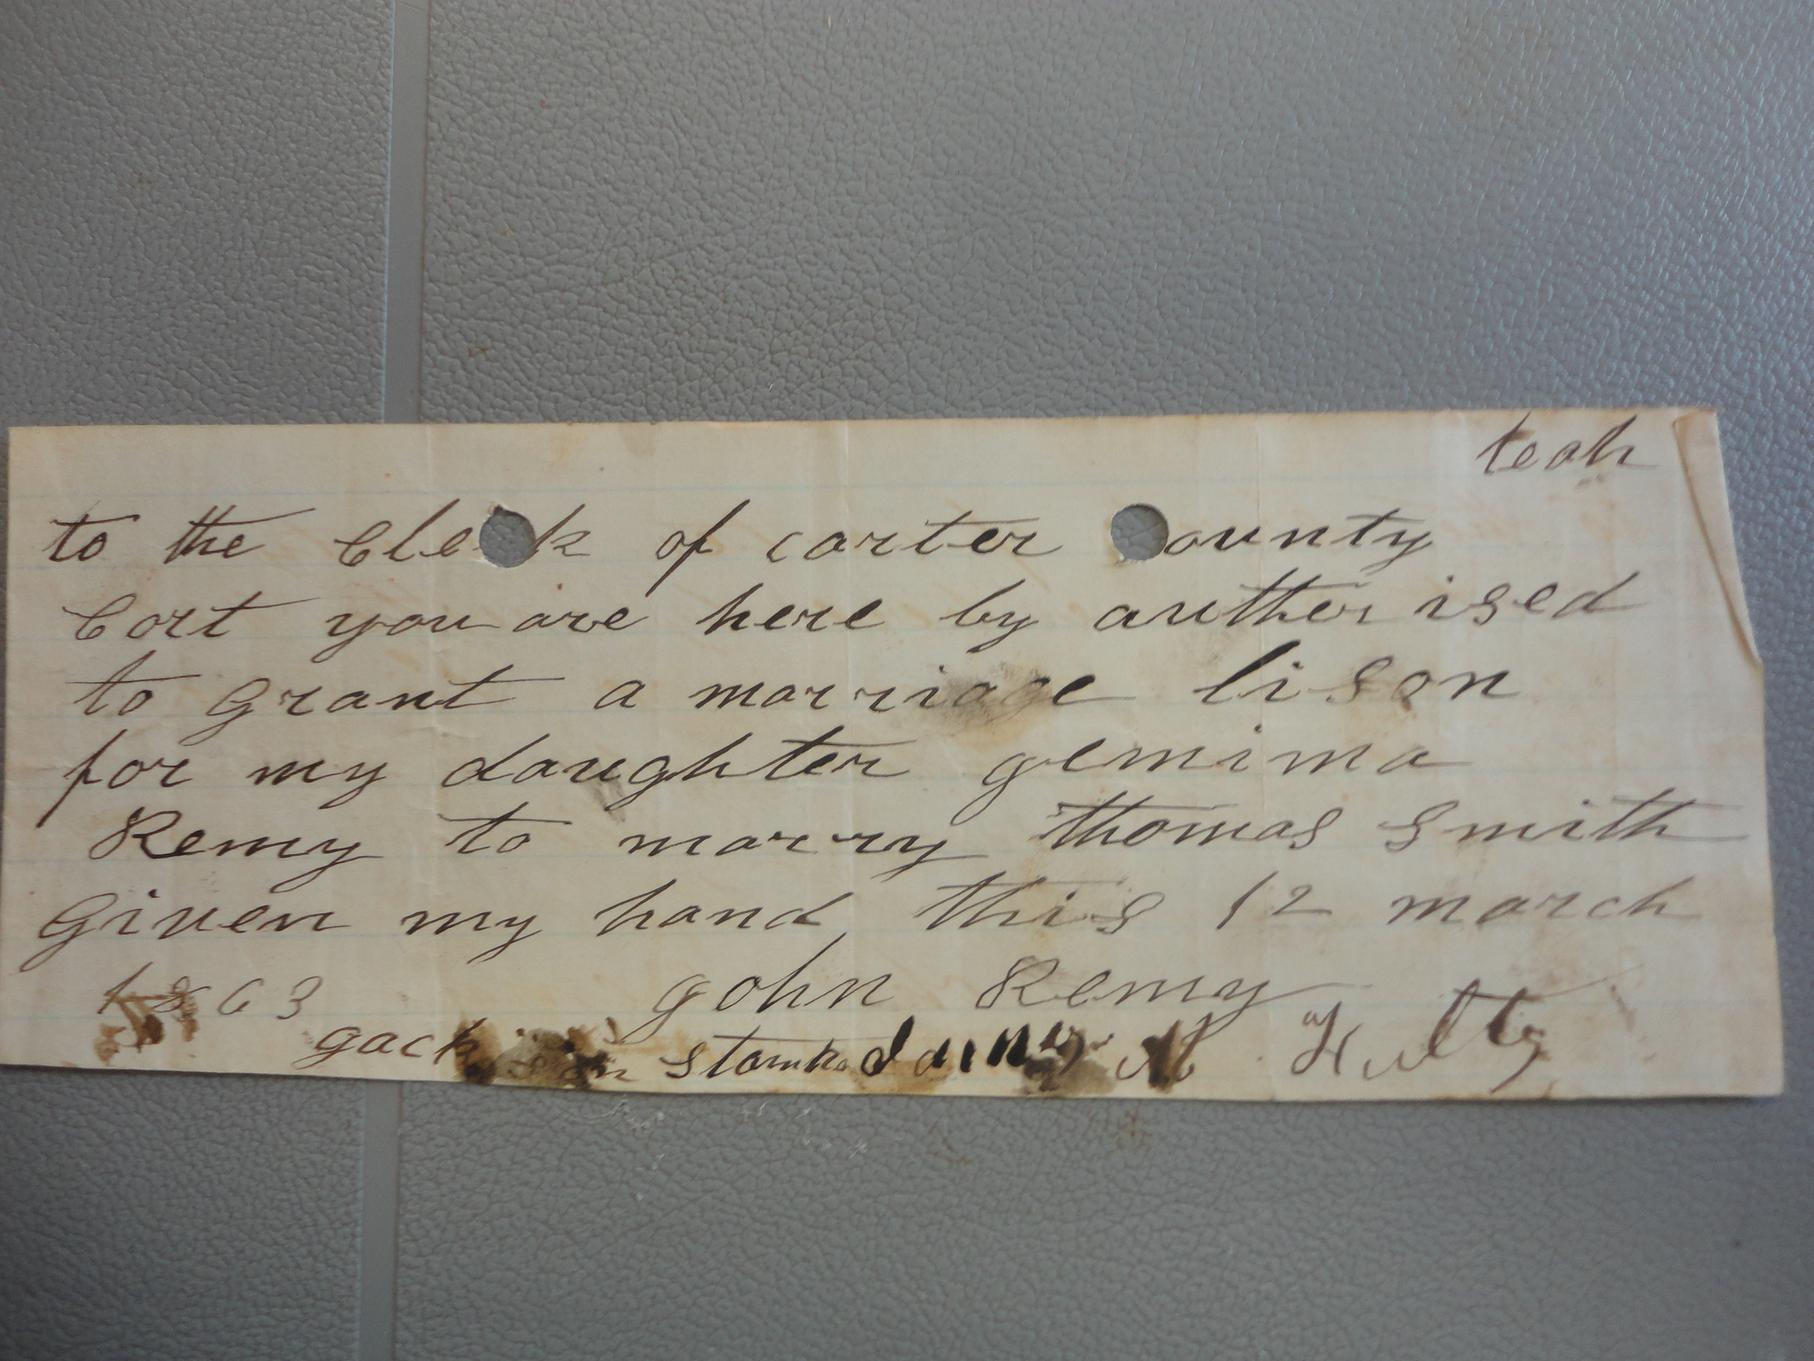 teah
to the Cle k of carter ounty
Cort you are here by autherised
to grant a marriage lison
for my daughter gemima
Remy to marry thomas smith
Given my hand this 12 march
1863 gohn Remy
gack